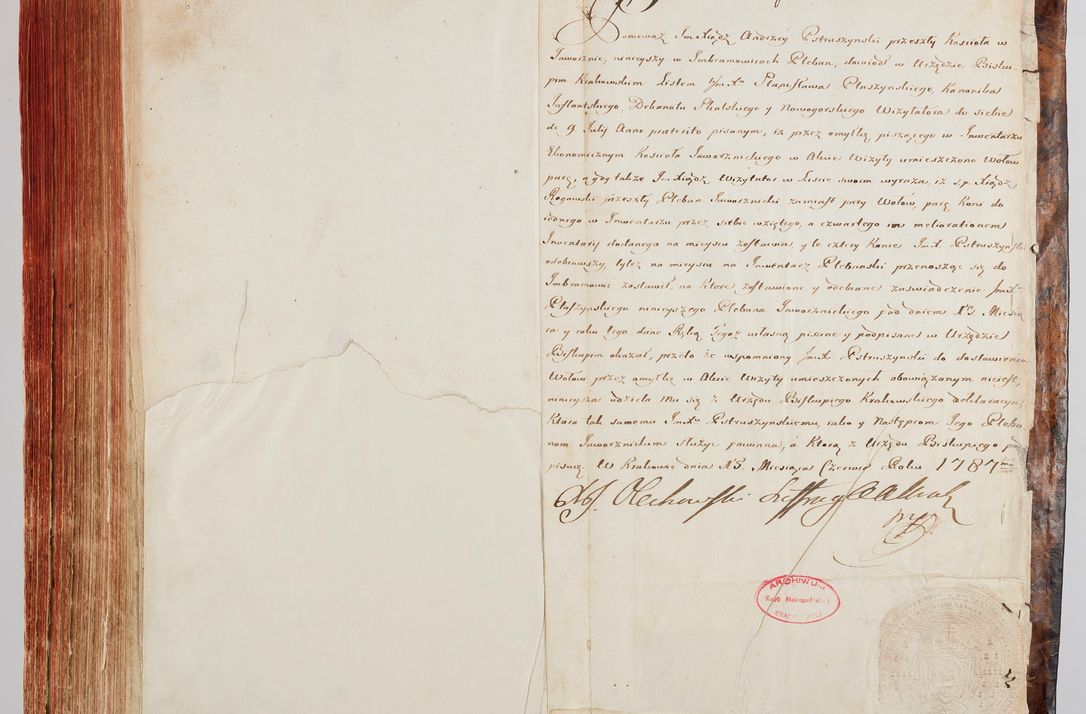 Ponieważ Jm Xiądz Andrzey Pstruszynski przeszły Kościoła w
Jaworznie, ninieyszy w Imbramowicach Pleban, dowiodł w Urzędzie Bisku-
pim Krakowskim Listem Jm Xa Stanisława Ptaszynskiego, Kanonika
Inflantskiego, Dekanatu Skalskiego y Nowogorskiego Wizytatora do siebie
de 9. Julij Anno praterito pisanym, iż przez omyłkę piszącego w Inwentarzu
Ekonomicznym Kościoła Jaworznickiego w Akcie Wizyty umieszczono Wołow
parę, a gdy także Jm Xiądz Wizytator w Liscie swoim wyraża, iż s.p. Xiądz
Rogawski przeszły Pleban Jaworznicki zamiast pary Wołow, parę Koni do
iednego w Inwentarzu przez siebie wziętego, a czwartego in meliorationem
Inwentarij dodanego na mieyscu zostawił, y te cztery Konie Jmx Pstruszynski
odebrawszy, tyleż na mieyscu na Inwentarz Plebanski przenosząc się do
Imbramowic zostawił, na Ktore zostawione y odebrane zaswiadczenie Jmx
Ptaszynskiego ninieyszego Plebana Jaworznickiego pod dniem Miesią-
ca y roku tego dane Ręką Jegoż własną pisane y podpisane w Urzędzie
Biskupim okazał, przeto że wspomniony Jmx Pstruszynski do dostawienia
Wołow przez omyłkę w Akcie Wizyty umieszczonych obowiązanym nieiest,
ninieysza udziela mu się z Urzędu Biskupiego Krakowskiego deklaracya,
Ktora tak samemu Jmx Pstruszynskiemu, iako y Następcom Jego Pleba-
nom Jaworznickim służyć powinna, a Ktorą z Urzędu Biskupiego pod-
pisuię. W Krakowie dnia 15. Miesiąca Czerwca Roku 1787mo
Olechowski
mp
ARCHIWUM
Kurii Metropolitalnej
KRAKOWSKIEJ